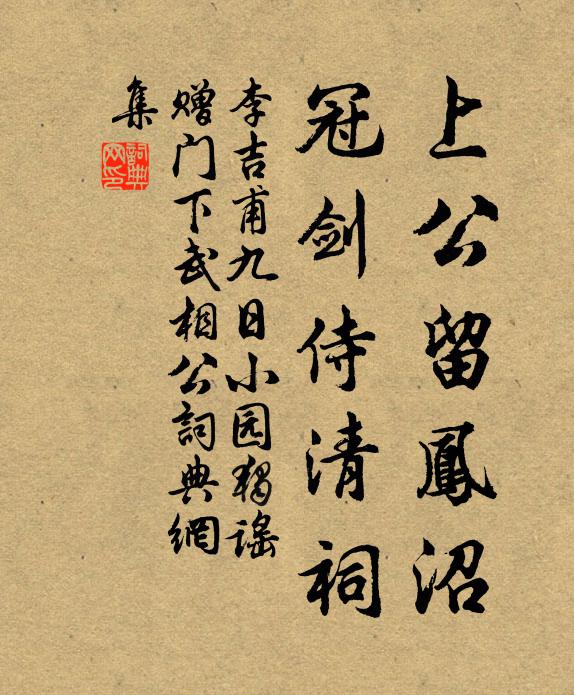 上公留鳳沼
冠剑侍清祠
李吉甫九日小园独谣
赠门下武相公詞典網
集
詞典网印